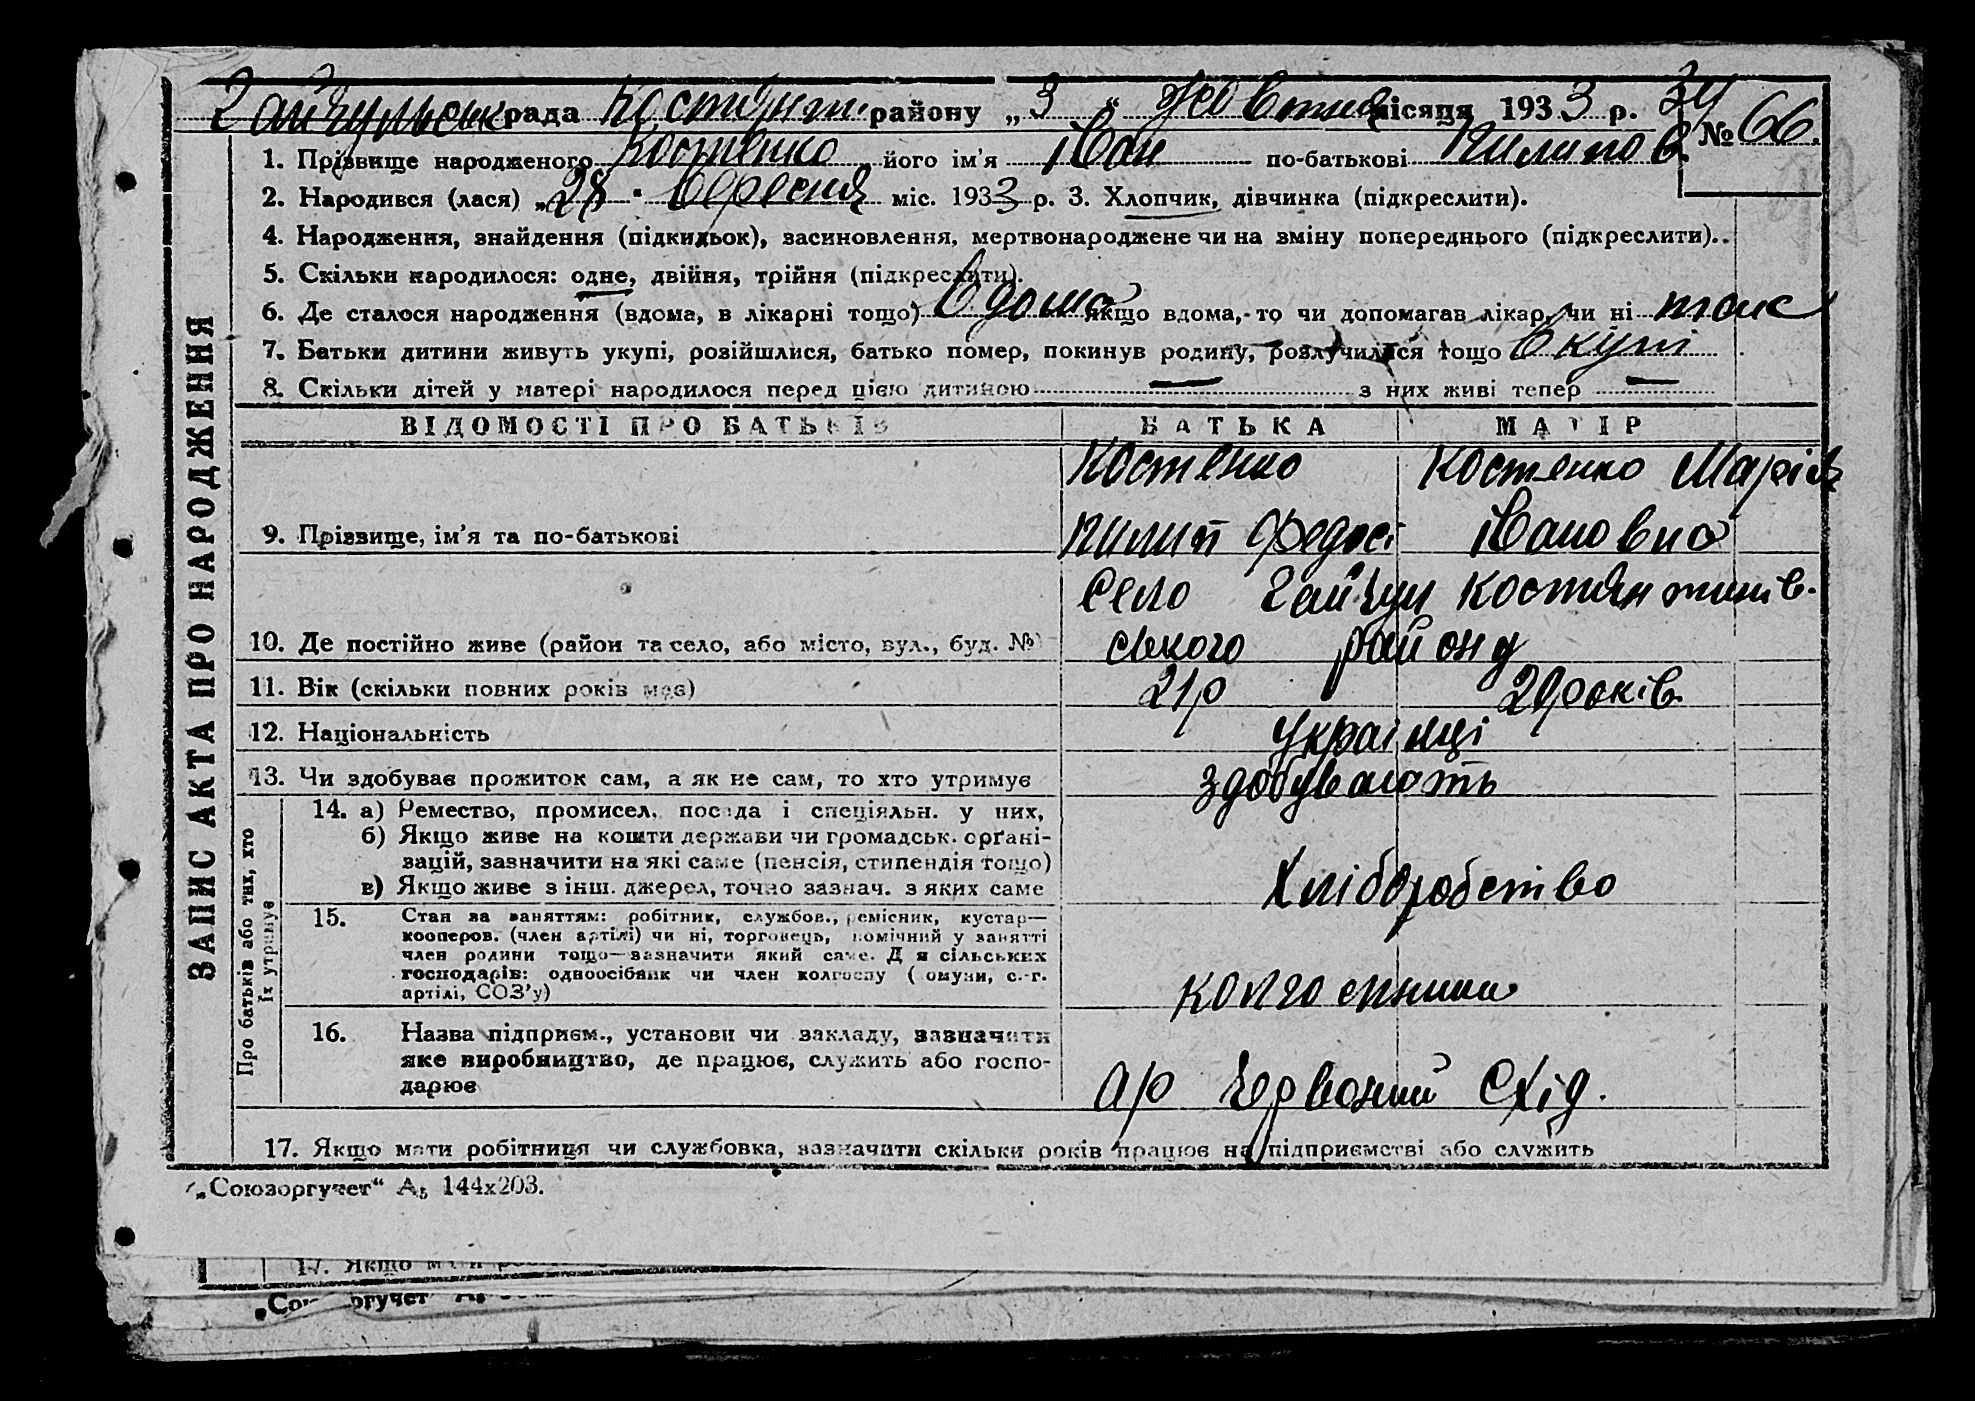 Гайчульськ рада Костянт. району „3“ Жовтня місяця 1933 р. 34
№ 66.
ЗАПИС АКТА ПРО НАРОДЖЕННЯ
1. Прізвище народженого Костенко його ім'я Іван по-батькові Пилипов.
2. Народився (лася) „28“ Вересня міс. 1933 р. 3. Хлопчик, дівчинка (підкреслити).
4. Народження, знайдення (підкидьок), засиновлення, мертвонароджене чи на зміну попереднього (підкреслити)..
5. Скільки народилося: одне, двійня, трійня (підкреслити).
6. Де сталося народження (вдома, в лікарні тощо) Вдома якщо вдома, то чи допомагав лікар, чи ні так
7. Батьки дитини живуть укупі, розійшлися, батько помер, покинув родину, розлучилися тощо Вкупі
8. Скільки дітей у матері народилося перед цією дитиною — з них живі тепер —
ВІДОМОСТІ ПРО БАТЬКІВ БАТЬКА МАТІР
Костенко Костенко Марія
9. Прізвище, ім'я та по-батькові Пилип Федосі Івановна
Село Гайчул Костянтинів-
10. Де постійно живе (район та село, або місто, вул., буд. №) ського району
11. Вік (скільки повних років має) 21р 20років
12. Національність Українці
13. Чи здобуває прожиток сам, а як не сам, то хто утримує здобувають
Про батьків або тих, хто їх утримує
14. а) Ремество, промисел, посада і спеціяльн. у них,
б) Якщо живе на кошти держави чи громадськ. орґані-
зацій, зазначити на які саме (пенсія, стипендія тощо)
в) Якщо живе з інш. джерел, точно зазнач. з яких саме Хліборобство
15. Стан за заняттям: робітник, службов., ремісник, кустар—
кооперов. (член артілі) чи ні, торговець, помічний у занятті
член родини тощо—зазначити який саме. Для сільських
господарів: одноосібник чи член колгоспу (комуни, с.-г.
артілі, СОЗ'у) колгоспники
16. Назва підприєм., установи чи закладу, зазначити
яке виробництво, де працює, служить або госпо-
дарює ар Червоний Схід.
17. Якщо мати робітниця чи службовка, зазначити скільки років працює на підприємстві або служить
„Союзоргучет“ А₅ 144x203.
17. Якщо